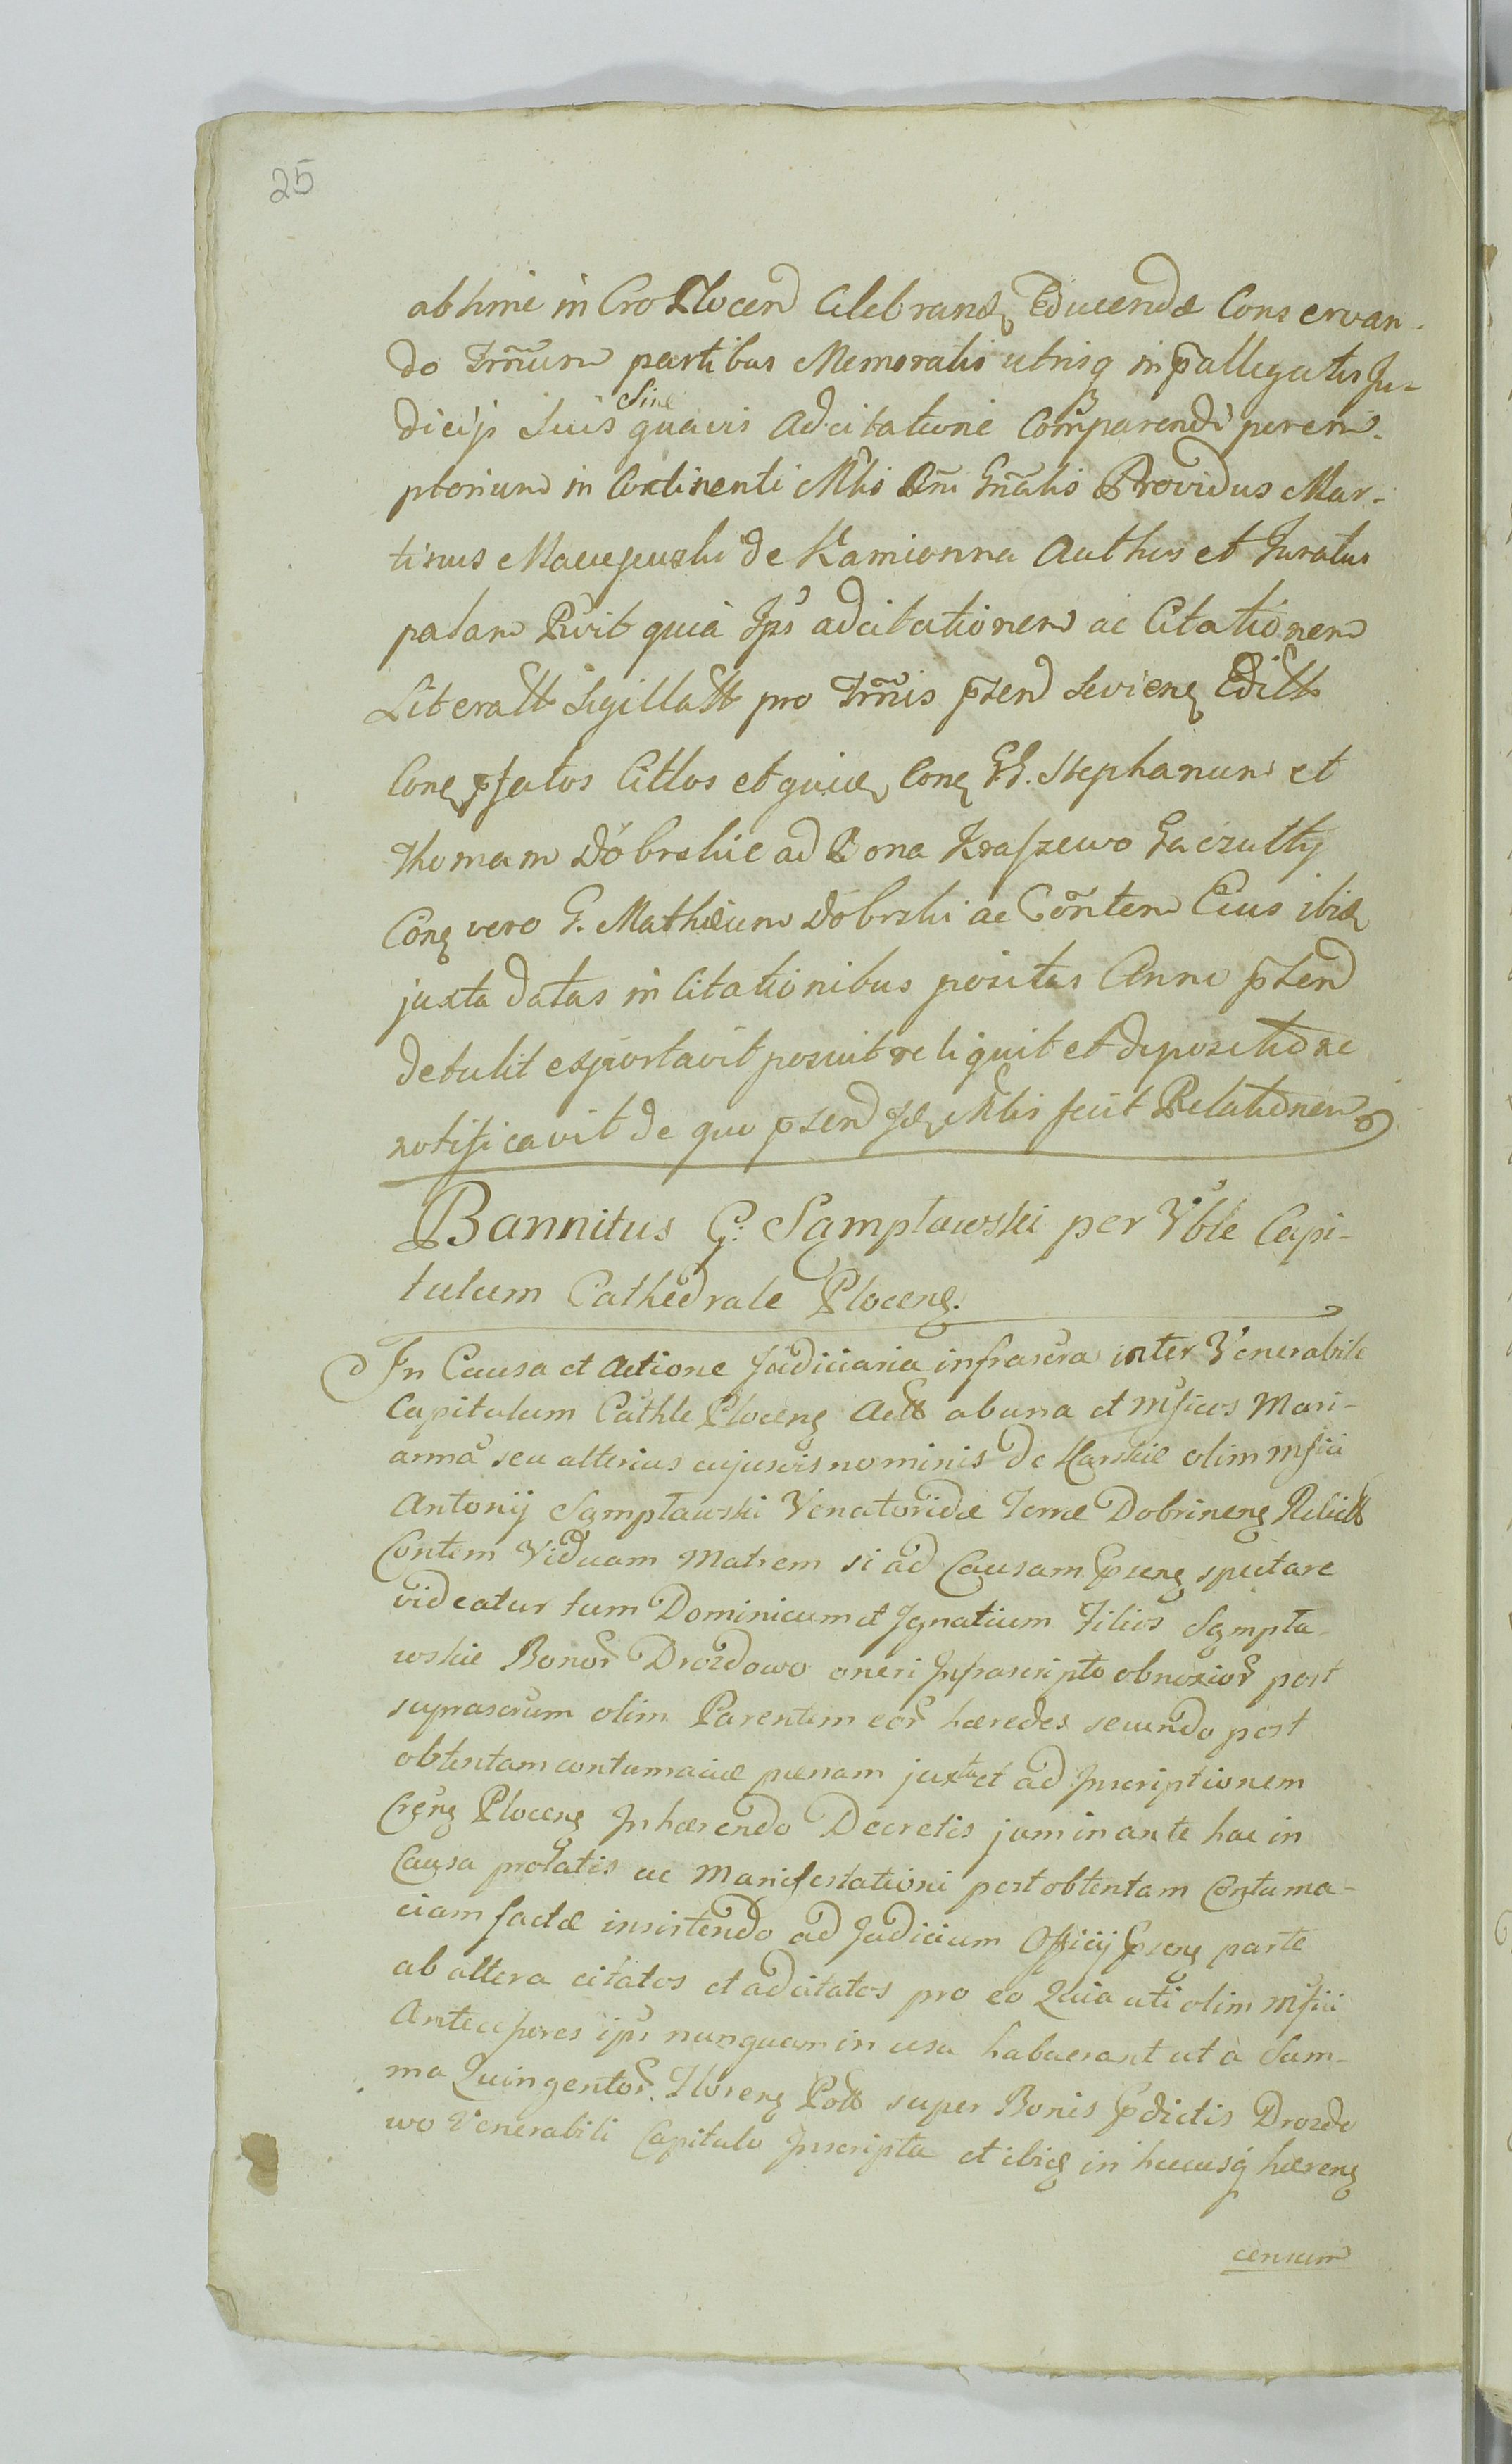 25
abhinc in Cro Plocen Celebrand Educenda Conservan-
do Trmum partibus Memoratis utrisq in pallegatis Ju-
dicijs Suis Sine quavis Adcitatione Comparendi perem-
ptorium in Continenti Mlis Rni Gnalis Providus Mar-
tinus Maciejewski de Kamionna Authus et Juratus
palam Rvit quia Ips adcitationem ac Citationem
Literatt Sigillatt pro Trmis psen Sevieng Editt
Cong pfatos Cittos et quid Cong GG. Stephanum et
Thomam Dobrskie ad Bona Kraszewo Gaczulty
Cong vero G. Mathæum Dobrski ac Contem Eius ibid
juxta datas in Citationibus positas Anni psen
detulit exportavit posuit reliquit et depositione
notificavit de quo psen Id Mlis fecit Relationem
Bannitus G. Sąmpławski per Vble Capi-
tulum Cathedrale Ploceng.
In Causa et Actione Judiciaria infrascra inter Venerabile
Capitulum Cathle Ploceng Actt ab una et Mficos Mari-
anna seu alterius cujusvis nominis de Karskie olim Mfici
Antonij Sąmpławski Venatoridæ Terræ Dobrineng Relictt
Contem Viduam Matrem si ad Causam pseng spectare
videatur tum Dominicum et Ignatium Filios Sąmpła-
wskie Bonor Drozdowo oneri Infrascripto obnoxior post
suprascrum olim Parentem eor hæredes secundo post
obtentam contumaciæ pænam juxta et ad Inscriptionem
Crgng Ploceng Inhærendo Decretis jam in ante hac in
Causa prolatis ac Manifestationi post obtentam Contuma-
ciam factæ insistendo ad Judicium Officij pseng parte
ab altera citatos et adcitatos pro eo Quia uti olim Mfici
Antecessores ips nunquam in usu habuerant ut à Sum-
ma Quingentor Floreng Poll super Bonis pdictis Drozdo
wo Venerabili Capitulo Inscripta et ibid in hucusq hæreng
censum